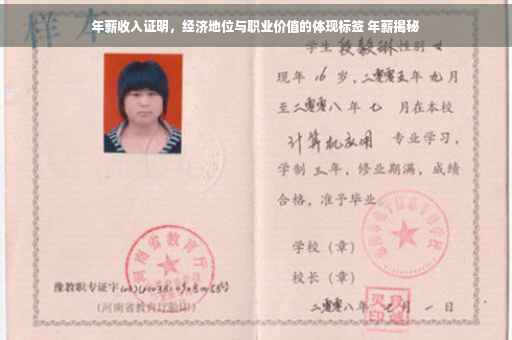 年薪收入证明，经济地位与职业价值的体现标签 年薪揭秘
样本
学生 段毅琳 性别 女
现年 16 岁，二零零五年 九月
至二零零八年 七 月在本校
计算机应用 专业学习，
学制 三 年，修业期满，成绩
合格，准予毕业
学校（章）
校长（章）
二零零八年 七 月 一 日
河南省教育厅
豫教职专证字
（河南省教育厅验印）